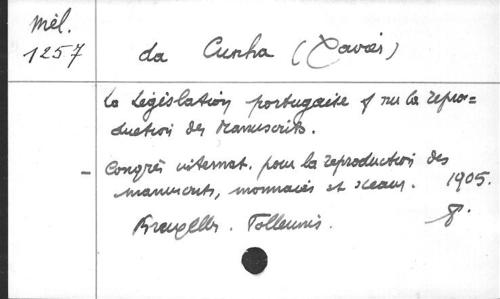 Mél.
1257
da Cunha (Xavier)
La Législation portugaise sur la repro=
duction des Manuscrits.
- Congrès internat. pour la reproduction des
manuscrits, monnaies et sceaux. 1905.
Bruxelles. Tollenuis.